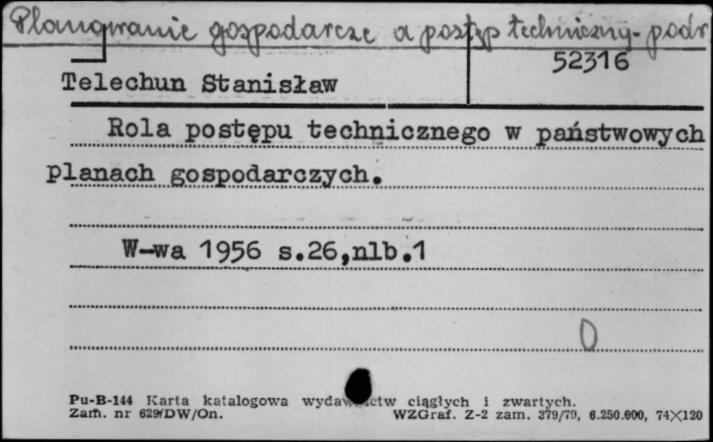 Planowanie gospodarcze a postęp techniczny - podr
52316
Telechun Stanisław
Rola postępu technicznego w państwowych
planach gospodarczych.
W-wa 1956 s.26,nlb.1
0
Pu-B-144 Karta katalogowa wydawnictw ciągłych i zwartych.
Zam. nr 629/DW/On. WZGraf. Z-2 zam. 379/79, 6.250.000, 74×120